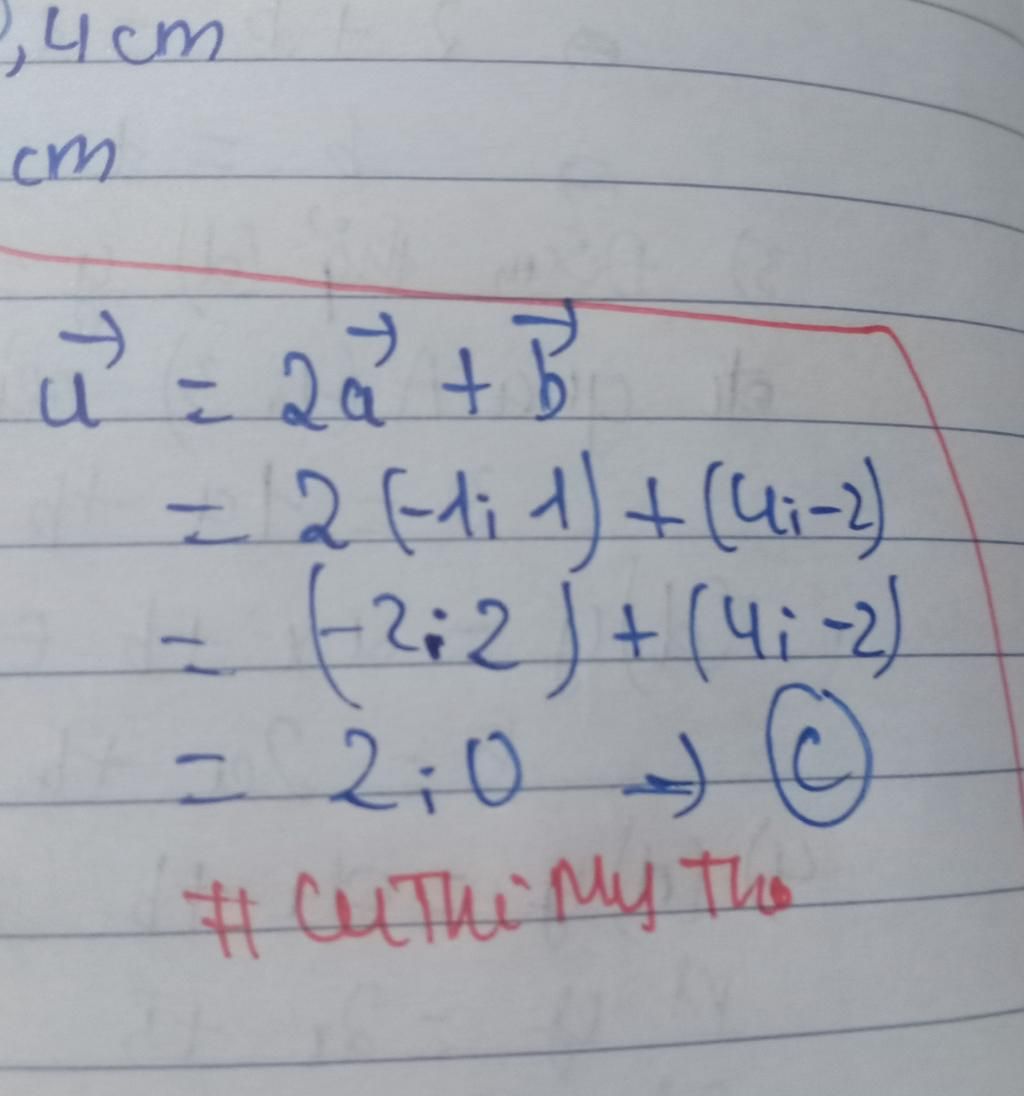 , 4 cm
cm
u⃗ = 2a⃗ + b⃗
= 2 (-1; 1) + (4; -2)
= (-2; 2) + (4; -2)
= 2; 0 → C
# CuThi My Tho